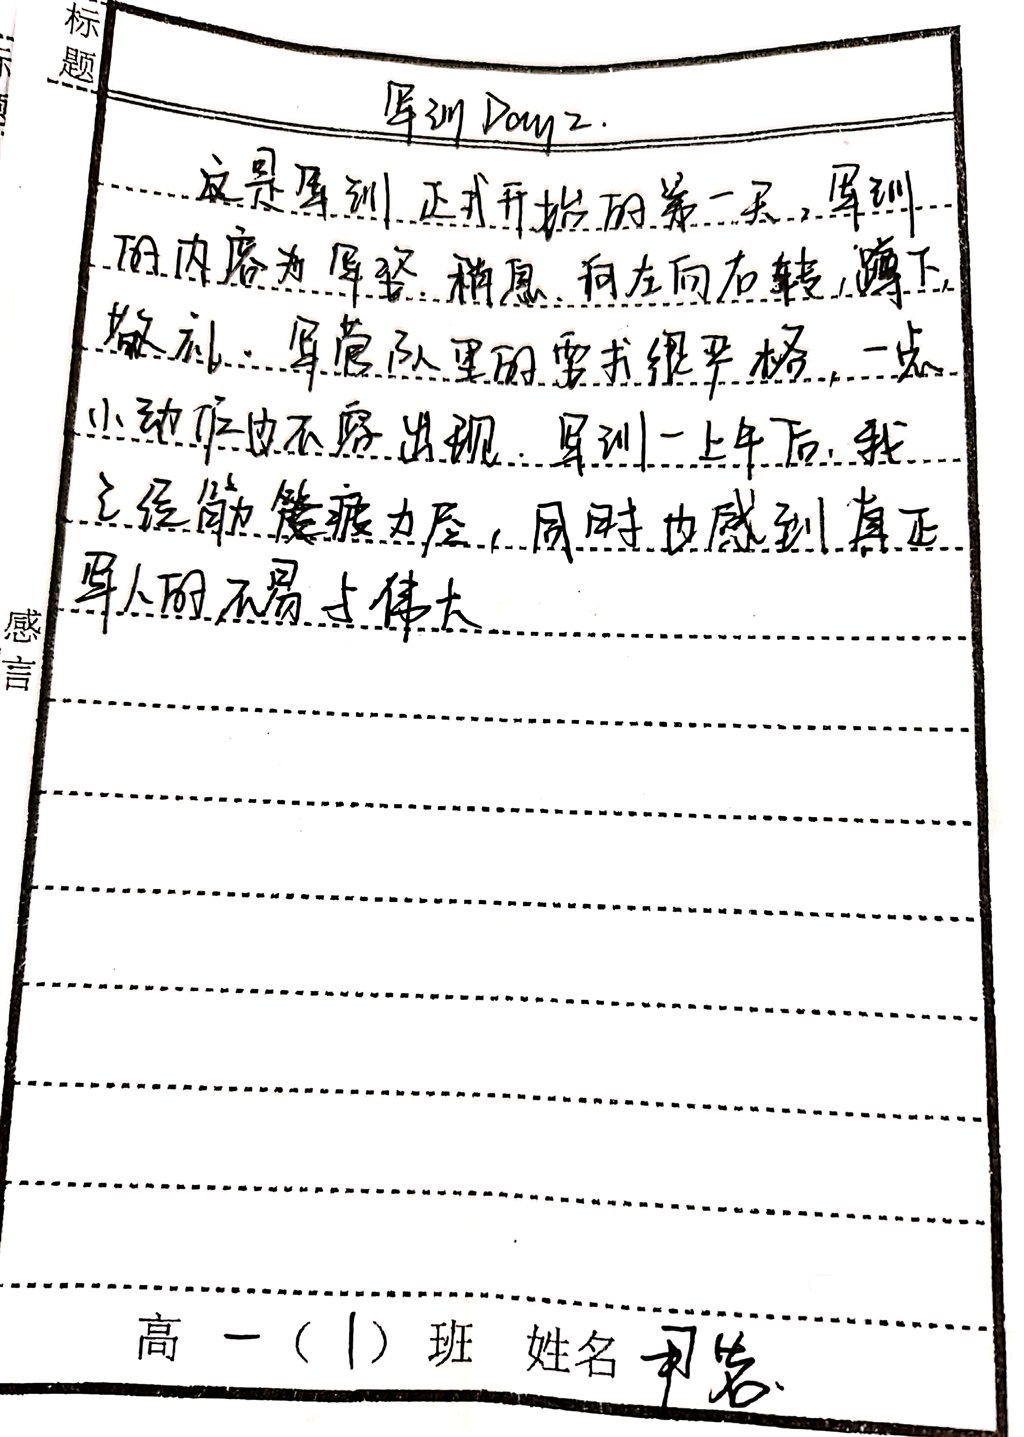 标题
军训Day2.
这是军训正式开始的第一天，军训
的内容为军姿、稍息、向左向右转，蹲下，
敬礼。军营队里的要求很严格，一点
小动作也不容出现。军训一上午后，我
已经筋疲力尽，同时也感到真正
军人的不易与伟大
感言
高一（1）班 姓名 尹